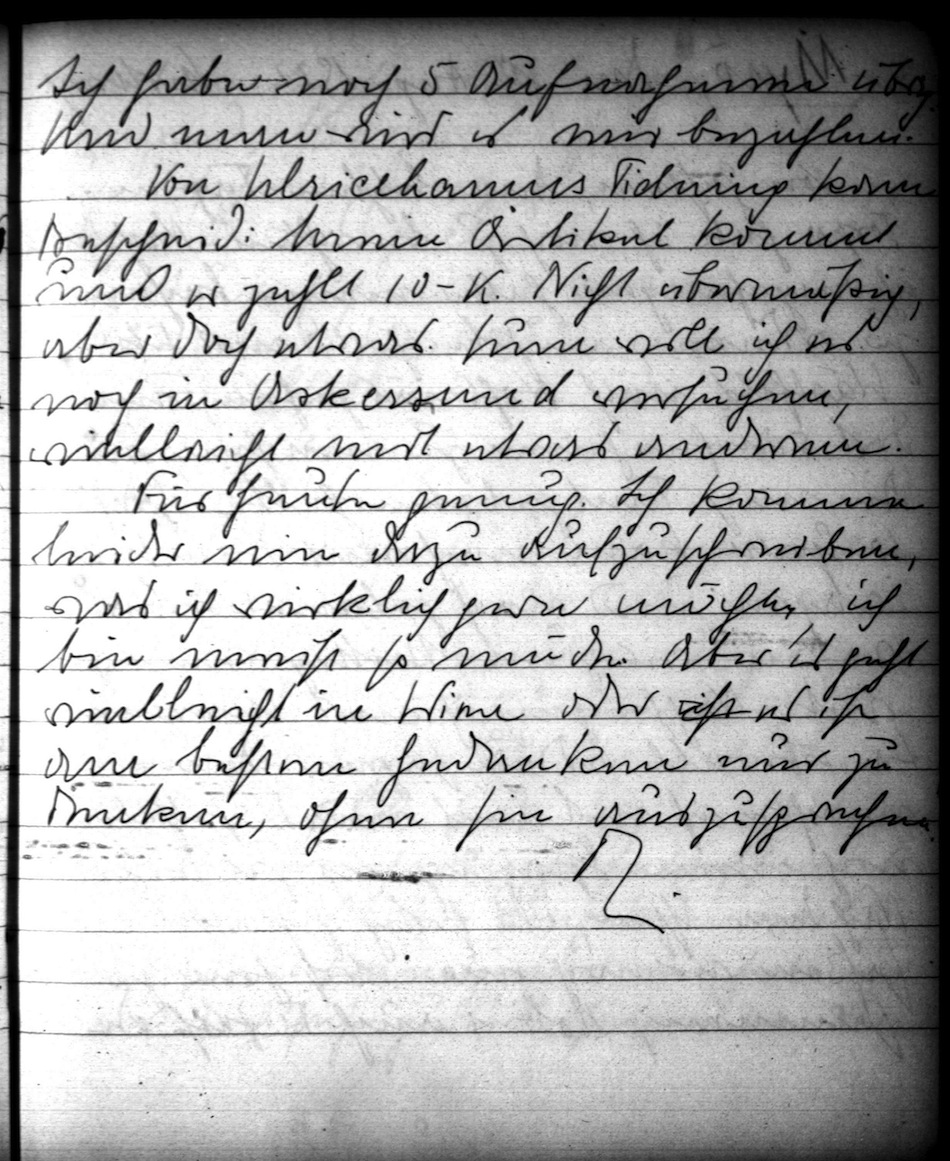 Ich habe noch 5 Aufnahmen übrig.
Und man wird es mir bezahlen.
Von Ulricehamns Tidning kam
Bescheid: Meine Artikel kommt
und er zahlt 10-K. Nicht übermäßig,
aber doch etwas. Nun will ich es
noch in Askersund versuchen,
vielleicht mit etwas anderem.
Für heute genug. Ich komme
leider nie dazu aufzuschreiben,
was ich wirklich gern möchte, ich
bin meist so müde. Aber es geht
vielleicht in Briefen oder es ist
am besten Gedanken nur zu
denken, ohne sie auszusprechen.
R.